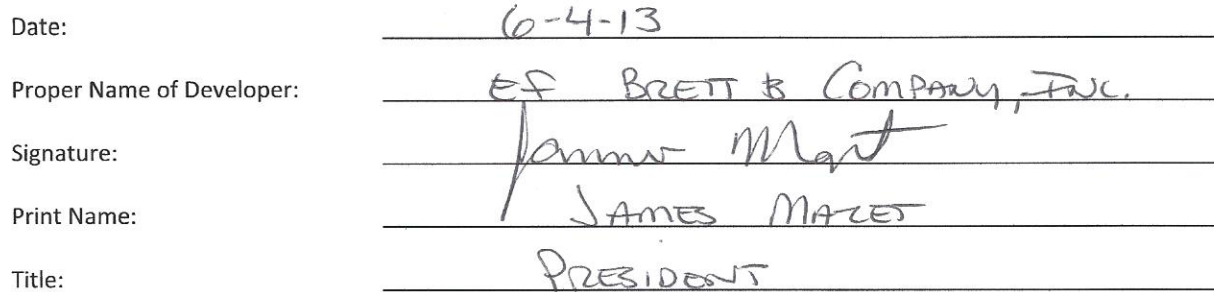 Date: 6-4-13
Proper Name of Developer: EF BRETT & COMPANY, INC.
Signature:
Print Name: JAMES MAZET
Title: PRESIDENT